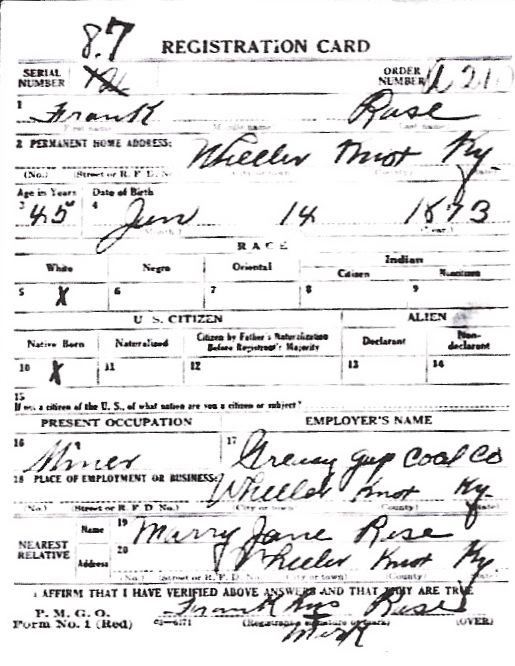 8.7
REGISTRATION CARD
SERIAL NUMBER
ORDER NUMBER A 210
1 Frank Rose
First name Middle name Last name
2 PERMANENT HOME ADDRESS:
Wheeler Knot Ky.
(No.) (Street or R. F. D. No.) (City or town) (County) (State)
Age in Years Date of Birth
3 45 4 Jun 14 1873
(Month.) (Year.)
RACE
White Negro Oriental Indian
Citizen Noncitizen
5 X 6 7 8 9
U. S. CITIZEN ALIEN
Native Born Naturalized Citizen by Father's Naturalization Before Registrant's Majority Declarant Non-declarant
10 X 11 12 13 14
15
If not a citizen of the U. S., of what nation are you a citizen or subject?
PRESENT OCCUPATION EMPLOYER'S NAME
16 Miner 17 Greasy gap Coal Co
18 PLACE OF EMPLOYMENT OR BUSINESS:
Wheeler Knot Ky
(No.) (Street or R. F. D. No.) (City or town) (County) (State)
NEAREST RELATIVE
Name 19 Marry Jane Rose
Address 20 Wheeler Knot Ky.
(No.) (Street or R. F. D. No.) (City or town) (County) (State)
I AFFIRM THAT I HAVE VERIFIED ABOVE ANSWERS AND THAT THEY ARE TRUE
P. M. G. O.
Form No. 1 (Red) 03—6171 Frank his Rose
(Registrant's signature or mark) (OVER)
Mark